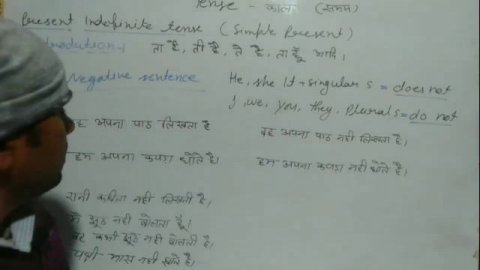 Tense - काल (समय)
Present Indefinite tense (Simple Present)
ता है, ती है, ते है, ता हूँ आदि।
Negative sentence He, she It + singular s = does not
I, we, you, they, Plural s = do not
वह अपना पाठ लिखता है। वह अपना पाठ नही लिखता है।
हम अपना कपड़ा धोते है। हम अपना कपड़ा नही धोते है।
रानी कविता नही लिखती है।
मै झूठ नही बोलता हूँ।
वह कभी झूठ नही बोलती है।
पक्षी मास नही खाते है।